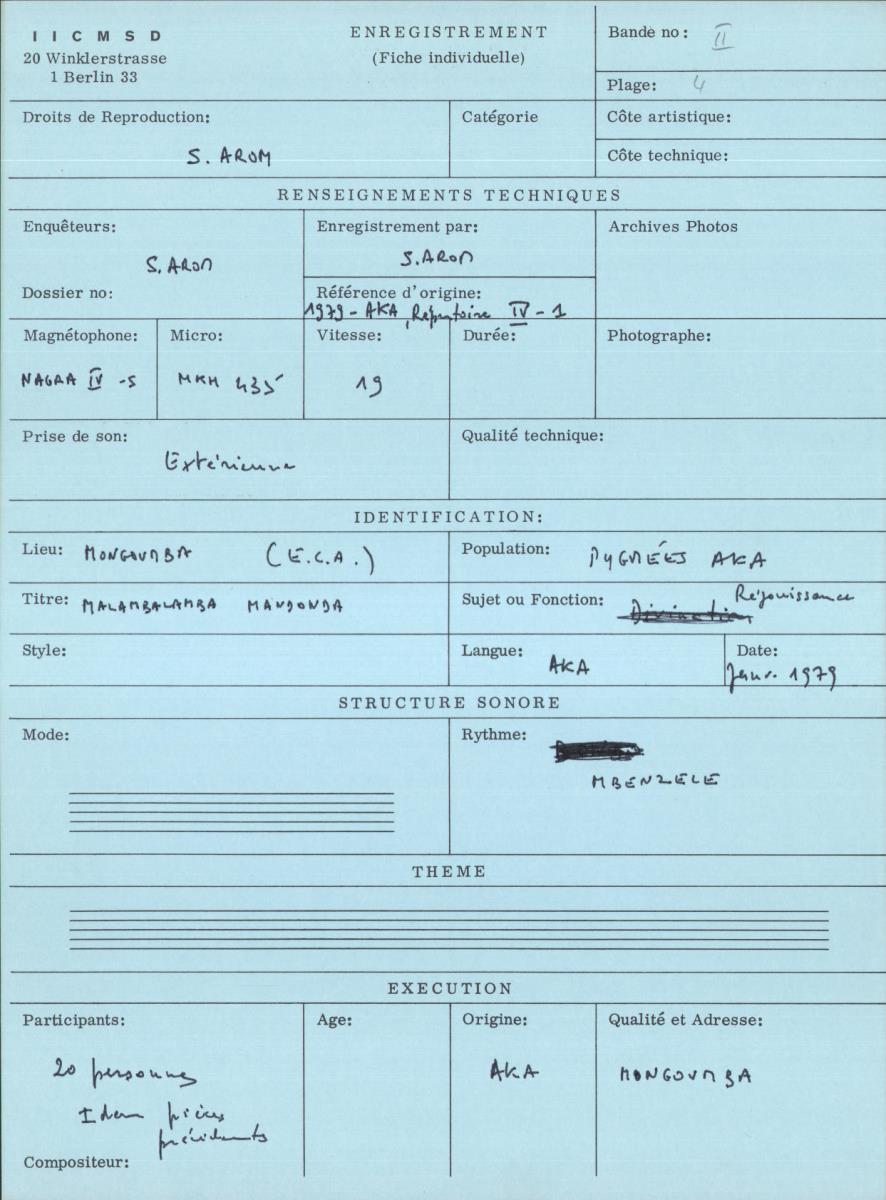 IICMSD
20 Winklerstrasse
1 Berlin 33
ENREGISTREMENT
(Fiche individuelle)
Bande no: II
Plage: 4
Droits de Reproduction:
S. AROM
Catégorie
Côte artistique:
Côte technique:
RENSEIGNEMENTS TECHNIQUES
Enquêteurs:
S. AROM
Dossier no:
Enregistrement par:
S. AROM
Référence d'origine:
1979 - AKA, Répertoire IV - 1
Archives Photos
Magnétophone:
NAGRA IV - S
Micro:
MKH 435
Vitesse:
19
Durée:
Photographe:
Prise de son:
Extérieure
Qualité technique:
IDENTIFICATION:
Lieu: MONGOUMBA (E.C.A.)
Population: PYGMÉES AKA
Titre: MALAMBALAMBA MANDONDA
Sujet ou Fonction: Divination Réjouissance
Style:
Langue: AKA
Date: Janv. 1979
STRUCTURE SONORE
Mode:
Rythme:
MBENZELE
THEME
EXECUTION
Participants:
20 personnes
Idem pièces
précédents
Compositeur:
Age:
Origine:
AKA
Qualité et Adresse:
MONGOUMBA